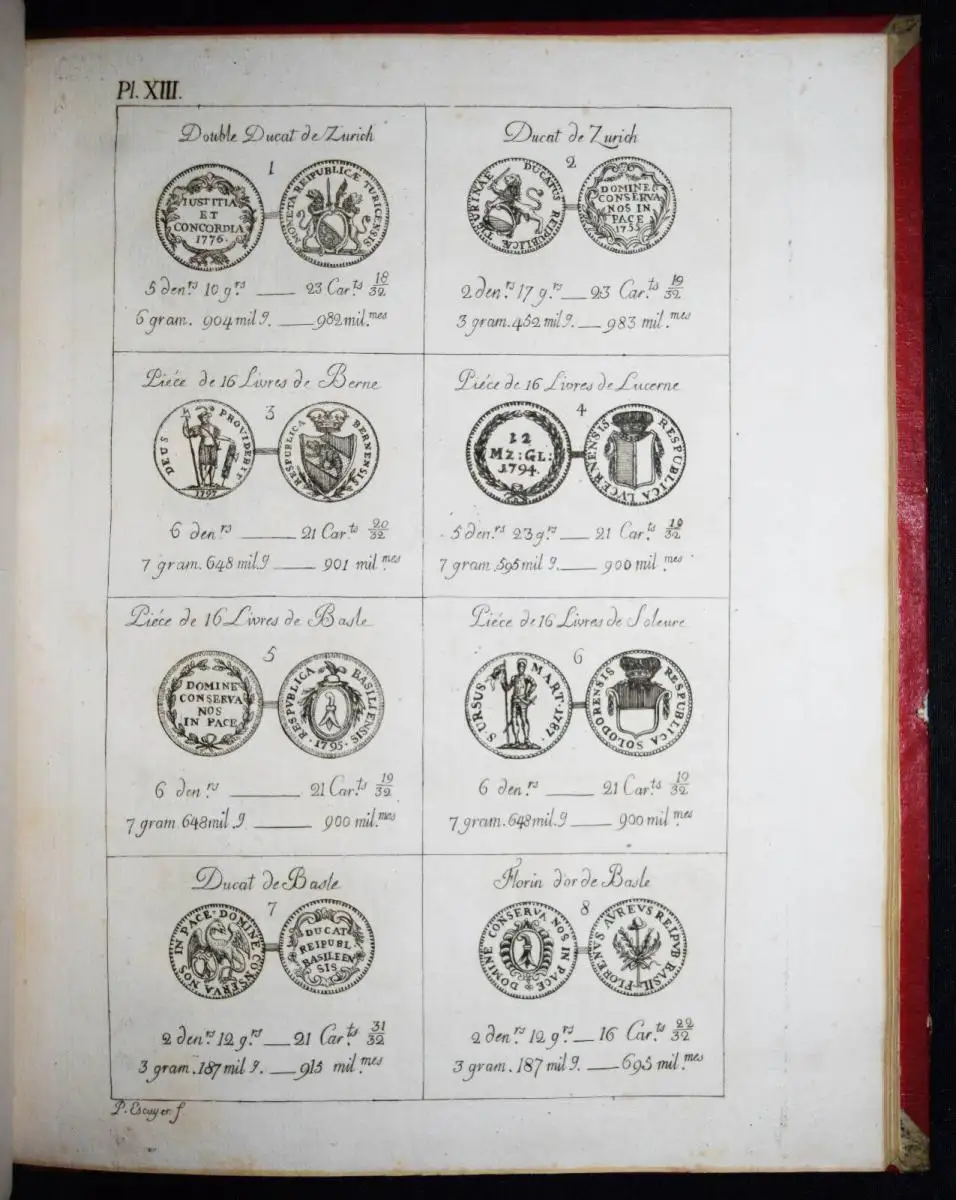 Pl. XIII.
Double Ducat de Zurich
1
IUSTITIA
ET
CONCORDIA
1776.
MONETA REIPUBLICÆ TURICENSIS
5 den.rs 10 g.rs ___ 23 Car.ts 18/32
6 gram. 904 mil g. ___ 982 mil.mes
Ducat de Zurich
2
DUCATUS REIPUBLICÆ TIGURINAE
DOMINE
CONSERVA
NOS IN
PACE
1755
2 den.rs 17 g.rs ___ 23 Car.ts 19/32
3 gram. 452 mil g. ___ 983 mil.mes
Piéce de 16 Livres de Berne
3
DEUS PROVIDEBIT
1797
RESPUBLICA BERNENSIS
6 den.rs ___ 21 Car.ts 20/32
7 gram. 648 mil.g ___ 901 mil.mes
Piéce de 16 Livres de Lucerne
4
12
Mz: GL:
1794.
RESPUBLICA LVCERNENSIS
5 den.rs 23 g.rs ___ 21 Car.ts 19/32
7 gram. 595 mil g. ___ 900 mil.mes
Piéce de 16 Livres de Basle
5
DOMINE
CONSERVA
NOS
IN PACE
RESPVBLICA BASILIENSIS
· 1795 ·
6 den.rs ___ 21 Car.ts 19/32
7 gram 648 mil. g ___ 900 mil.mes
Piéce de 16 Livres de Soleure
6
S URSUS MART. 1787.
RESPUBLICA SOLODORENSIS
6 den.rs ___ 21 Car.ts 19/32
7 gram. 648 mil. g ___ 900 mil.mes
Ducat de Basle
7
DOMINE CONSERVA NOS IN PACE
DUCAT
REIPUBL
BASILEEN
SIS
2 den.rs 12 g.rs ___ 21 Car.ts 31/32
3 gram. 187 mil g. ___ 915 mil.mes
Florin d'or de Basle
8
DOMINE CONSERVA NOS IN PACE
FLORENUS AVREVS REIPVB BASIL
2 den.rs 12 g.rs ___ 16 Car.ts 22/32
3 gram. 187 mil g. ___ 695 mil.mes
P. Escuyer f